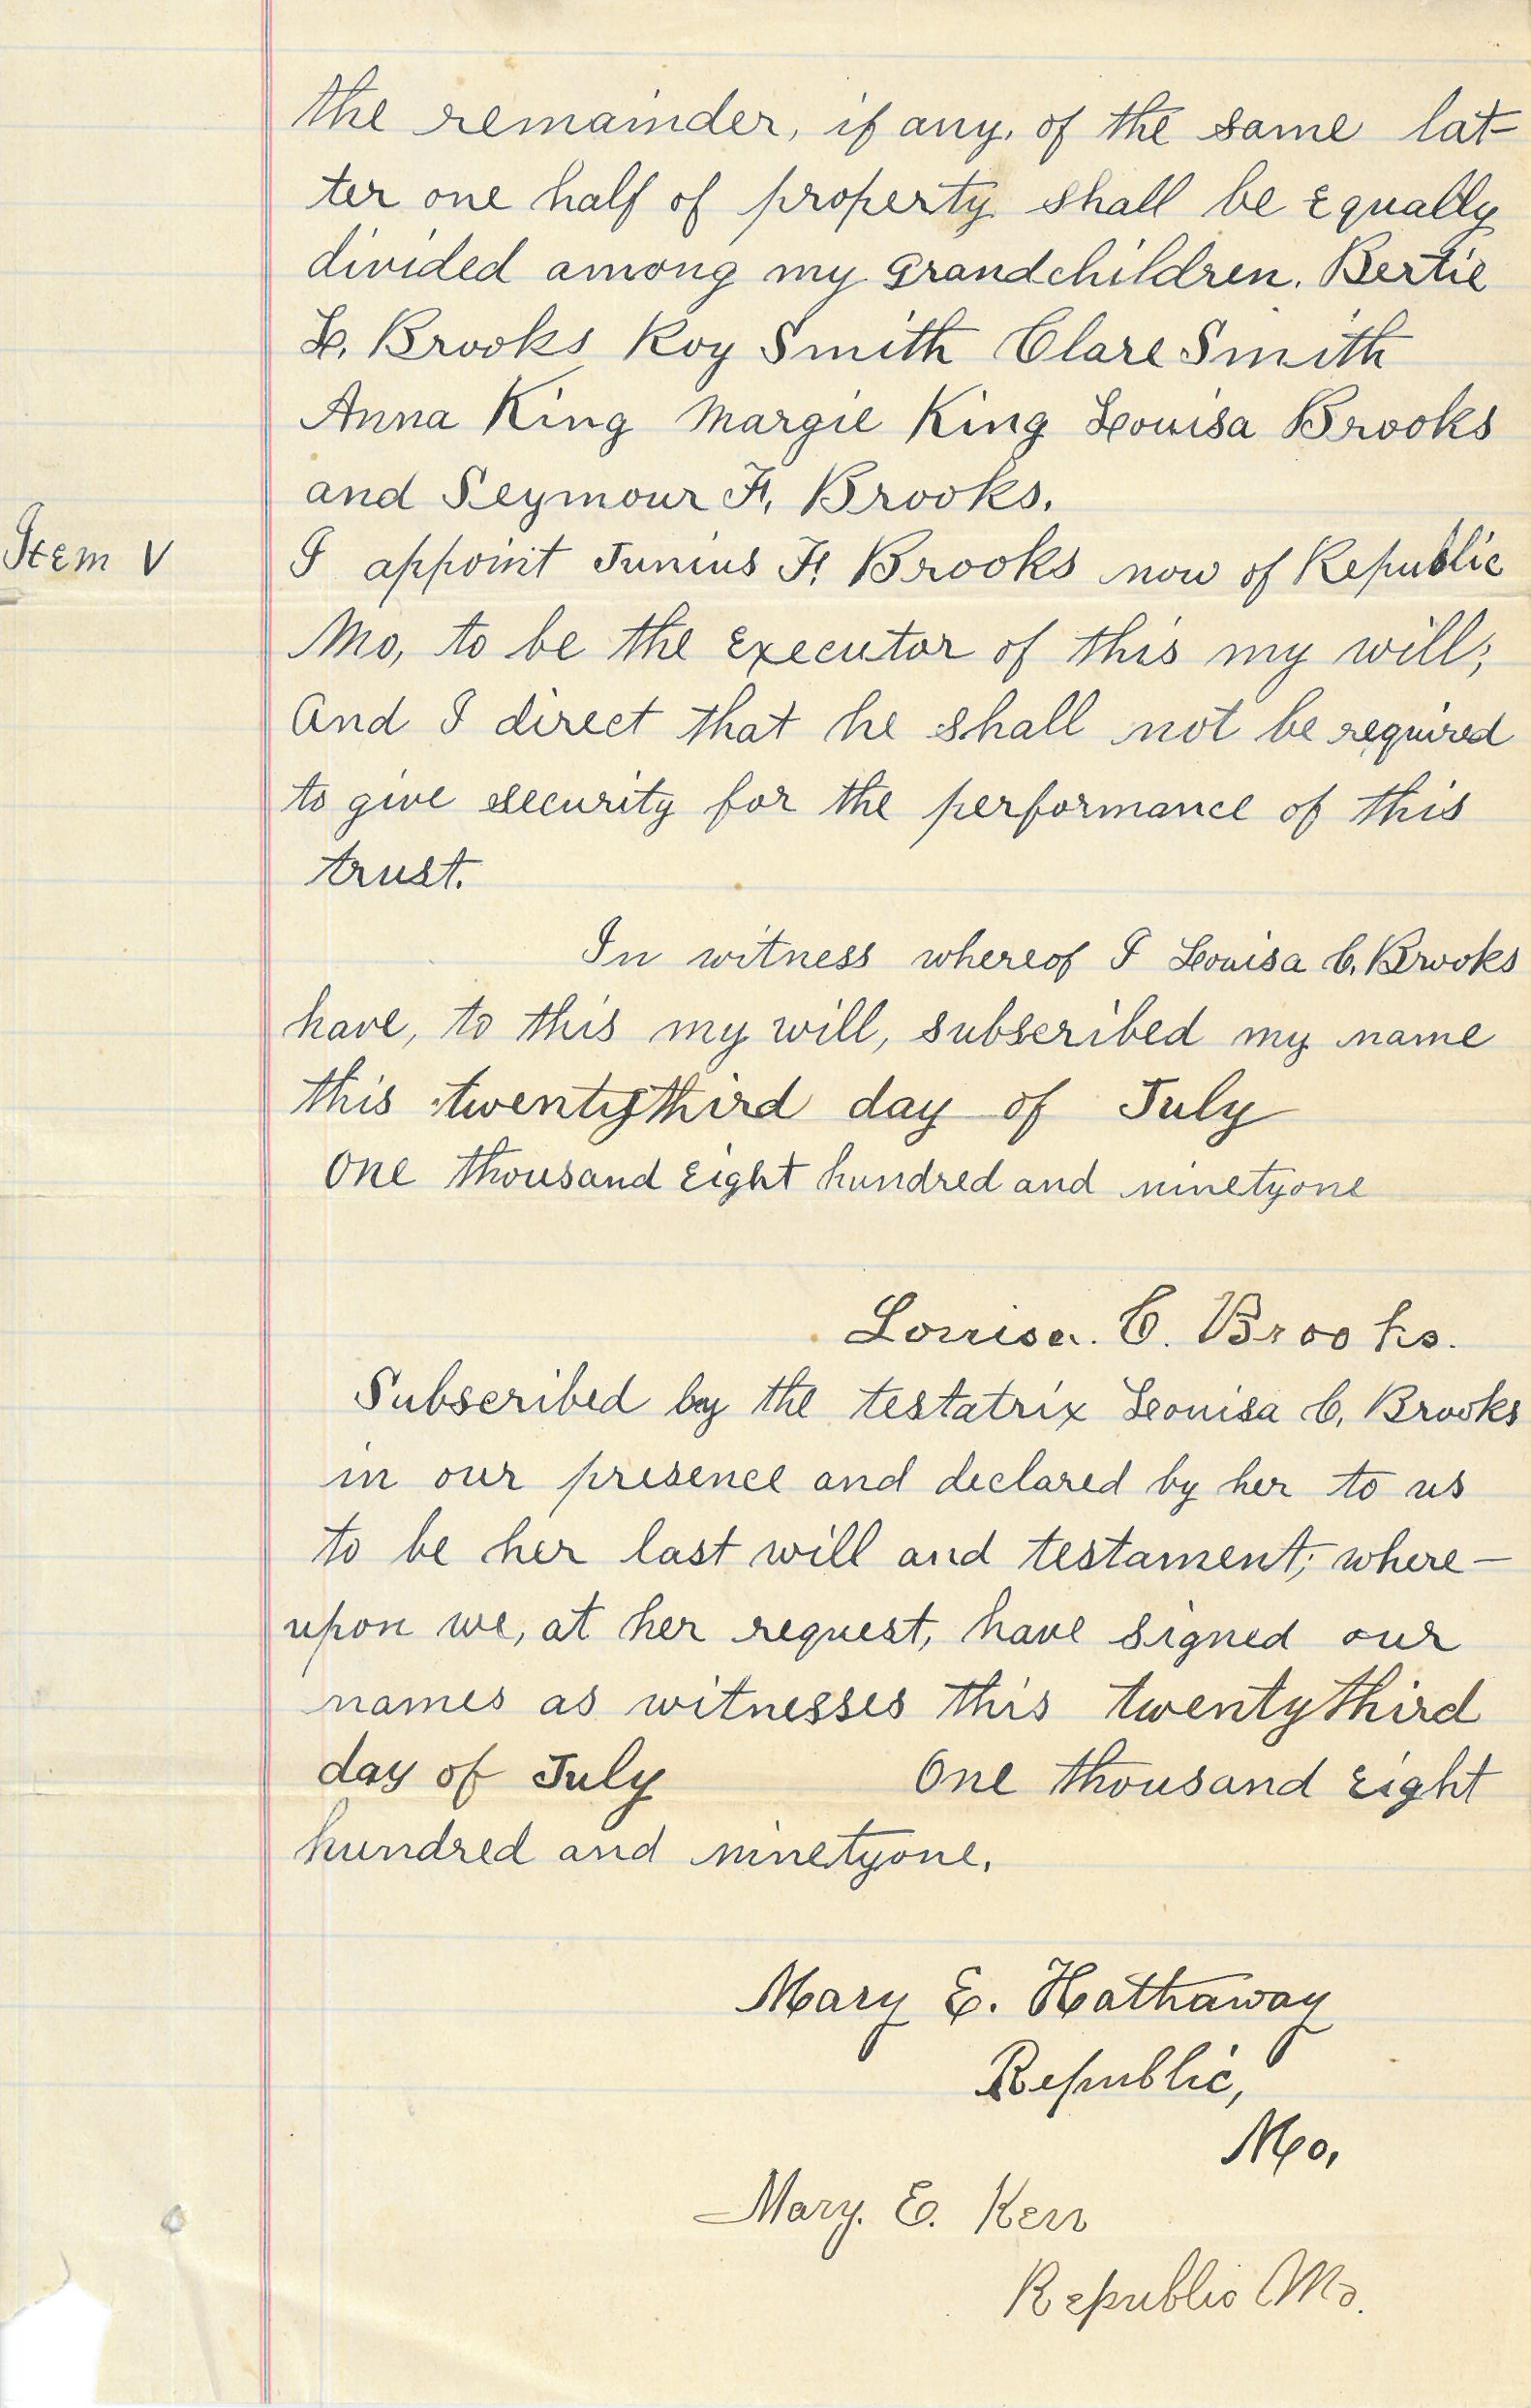 the remainder, if any, of the same lat-
ter one half of property shall be equally
divided among my grandchildren. Bertie
L. Brooks Roy Smith Clare Smith
Anna King Margie King Louisa Brooks
and Seymour F. Brooks.
Item V I appoint Junius F. Brooks now of Republic
Mo, to be the executor of this my will;
And I direct that he shall not be required
to give security for the performance of this
trust.
In witness whereof I Louisa C. Brooks
have, to this my will, subscribed my name
this twentythird day of July
One thousand eight hundred and ninetyone
Louisa. C. Brooks.
Subscribed by the testatrix Louisa C. Brooks
in our presence and declared by her to us
to be her last will and testament; where-
upon we, at her request, have signed our
names as witnesses this twentythird
day of July One thousand eight
hundred and ninetyone.
Mary E. Hathaway
Republic,
Mo,
Mary. E. Kerr
Republic Mo.